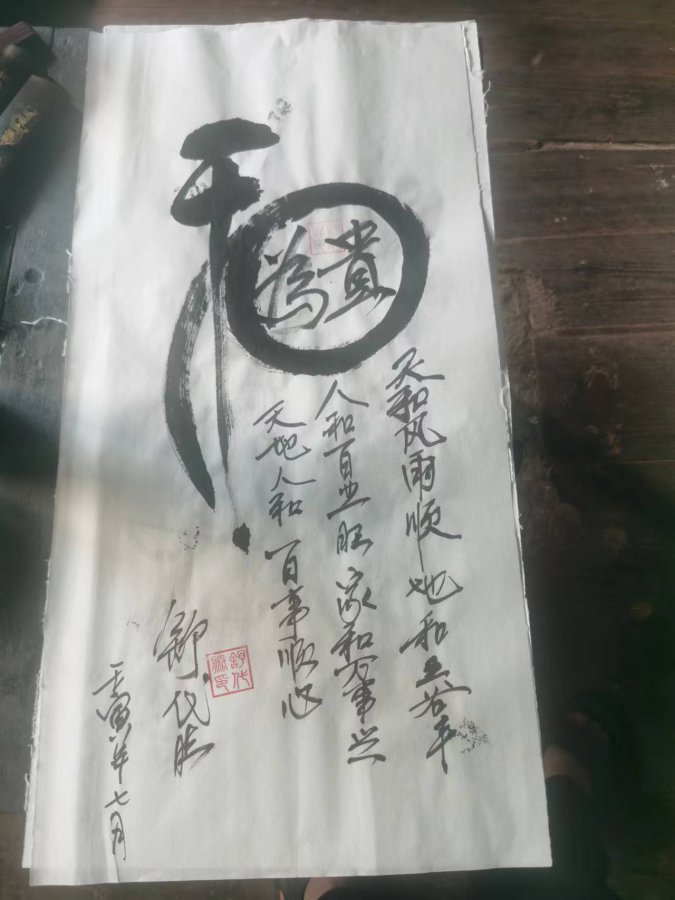 和
為貴
天和风雨顺 地和五谷丰
人和百业旺 家和万事兴
天地人和 百事顺心
舒代胜
舒代勝印
壬寅年七月